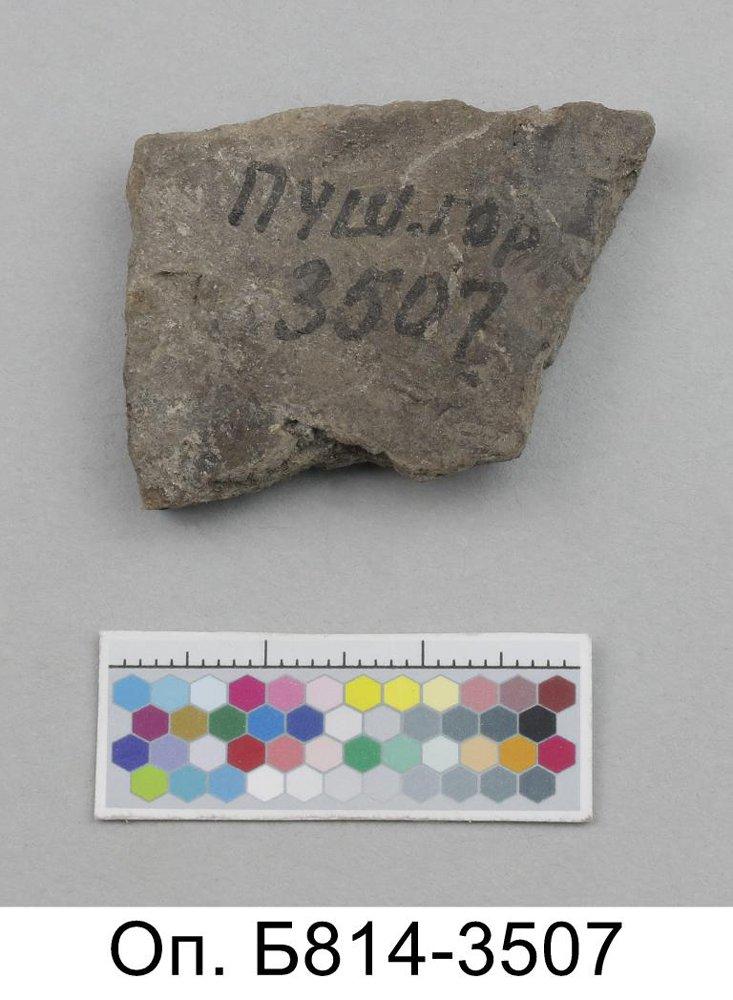 Пуш.гор
3507
Оп. Б814-3507